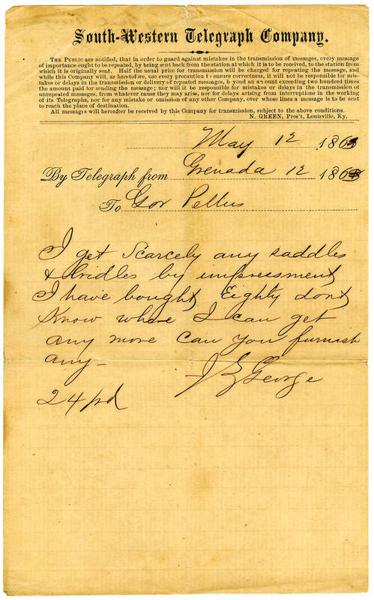 South-Western Telegraph Company.
THE PUBLIC are notified, that in order to guard against mistakes in the transmission of messages, every message
of importance ought to be repeated, by being sent back from the station at which it is to be received, to the station from
which it is originally sent. Half the usual price for transmission will be charged for repeating the message, and
while this Company will, as heretofore, use every precaution to ensure correctness, it will not be responsible for mis-
takes or delays in the transmission or delivery of repeated messages, beyond an amount exceeding two hundred times
the amount paid for sending the message; nor will it be responsible for mistakes or delays in the transmission of
unrepeated messages, from whatever cause they may arise, nor for delays arising from interruptions in the working
of its Telegraphs, nor for any mistake or omission of any other Company, over whose lines a message is to be sent
to reach the place of destination.
All messages will hereafter be received by this Company for transmission, subject to the above conditions.
N. GREEN, Pres't, Louisville, Ky.
May 12 1863
By Telegraph from Grenada 12 186
To Gov Pettus
I get scarcely any saddles
& bridles by impressment
I have bought Eighty dont
Know where I can get
any more can you furnish
any-
J Z George
24 pd